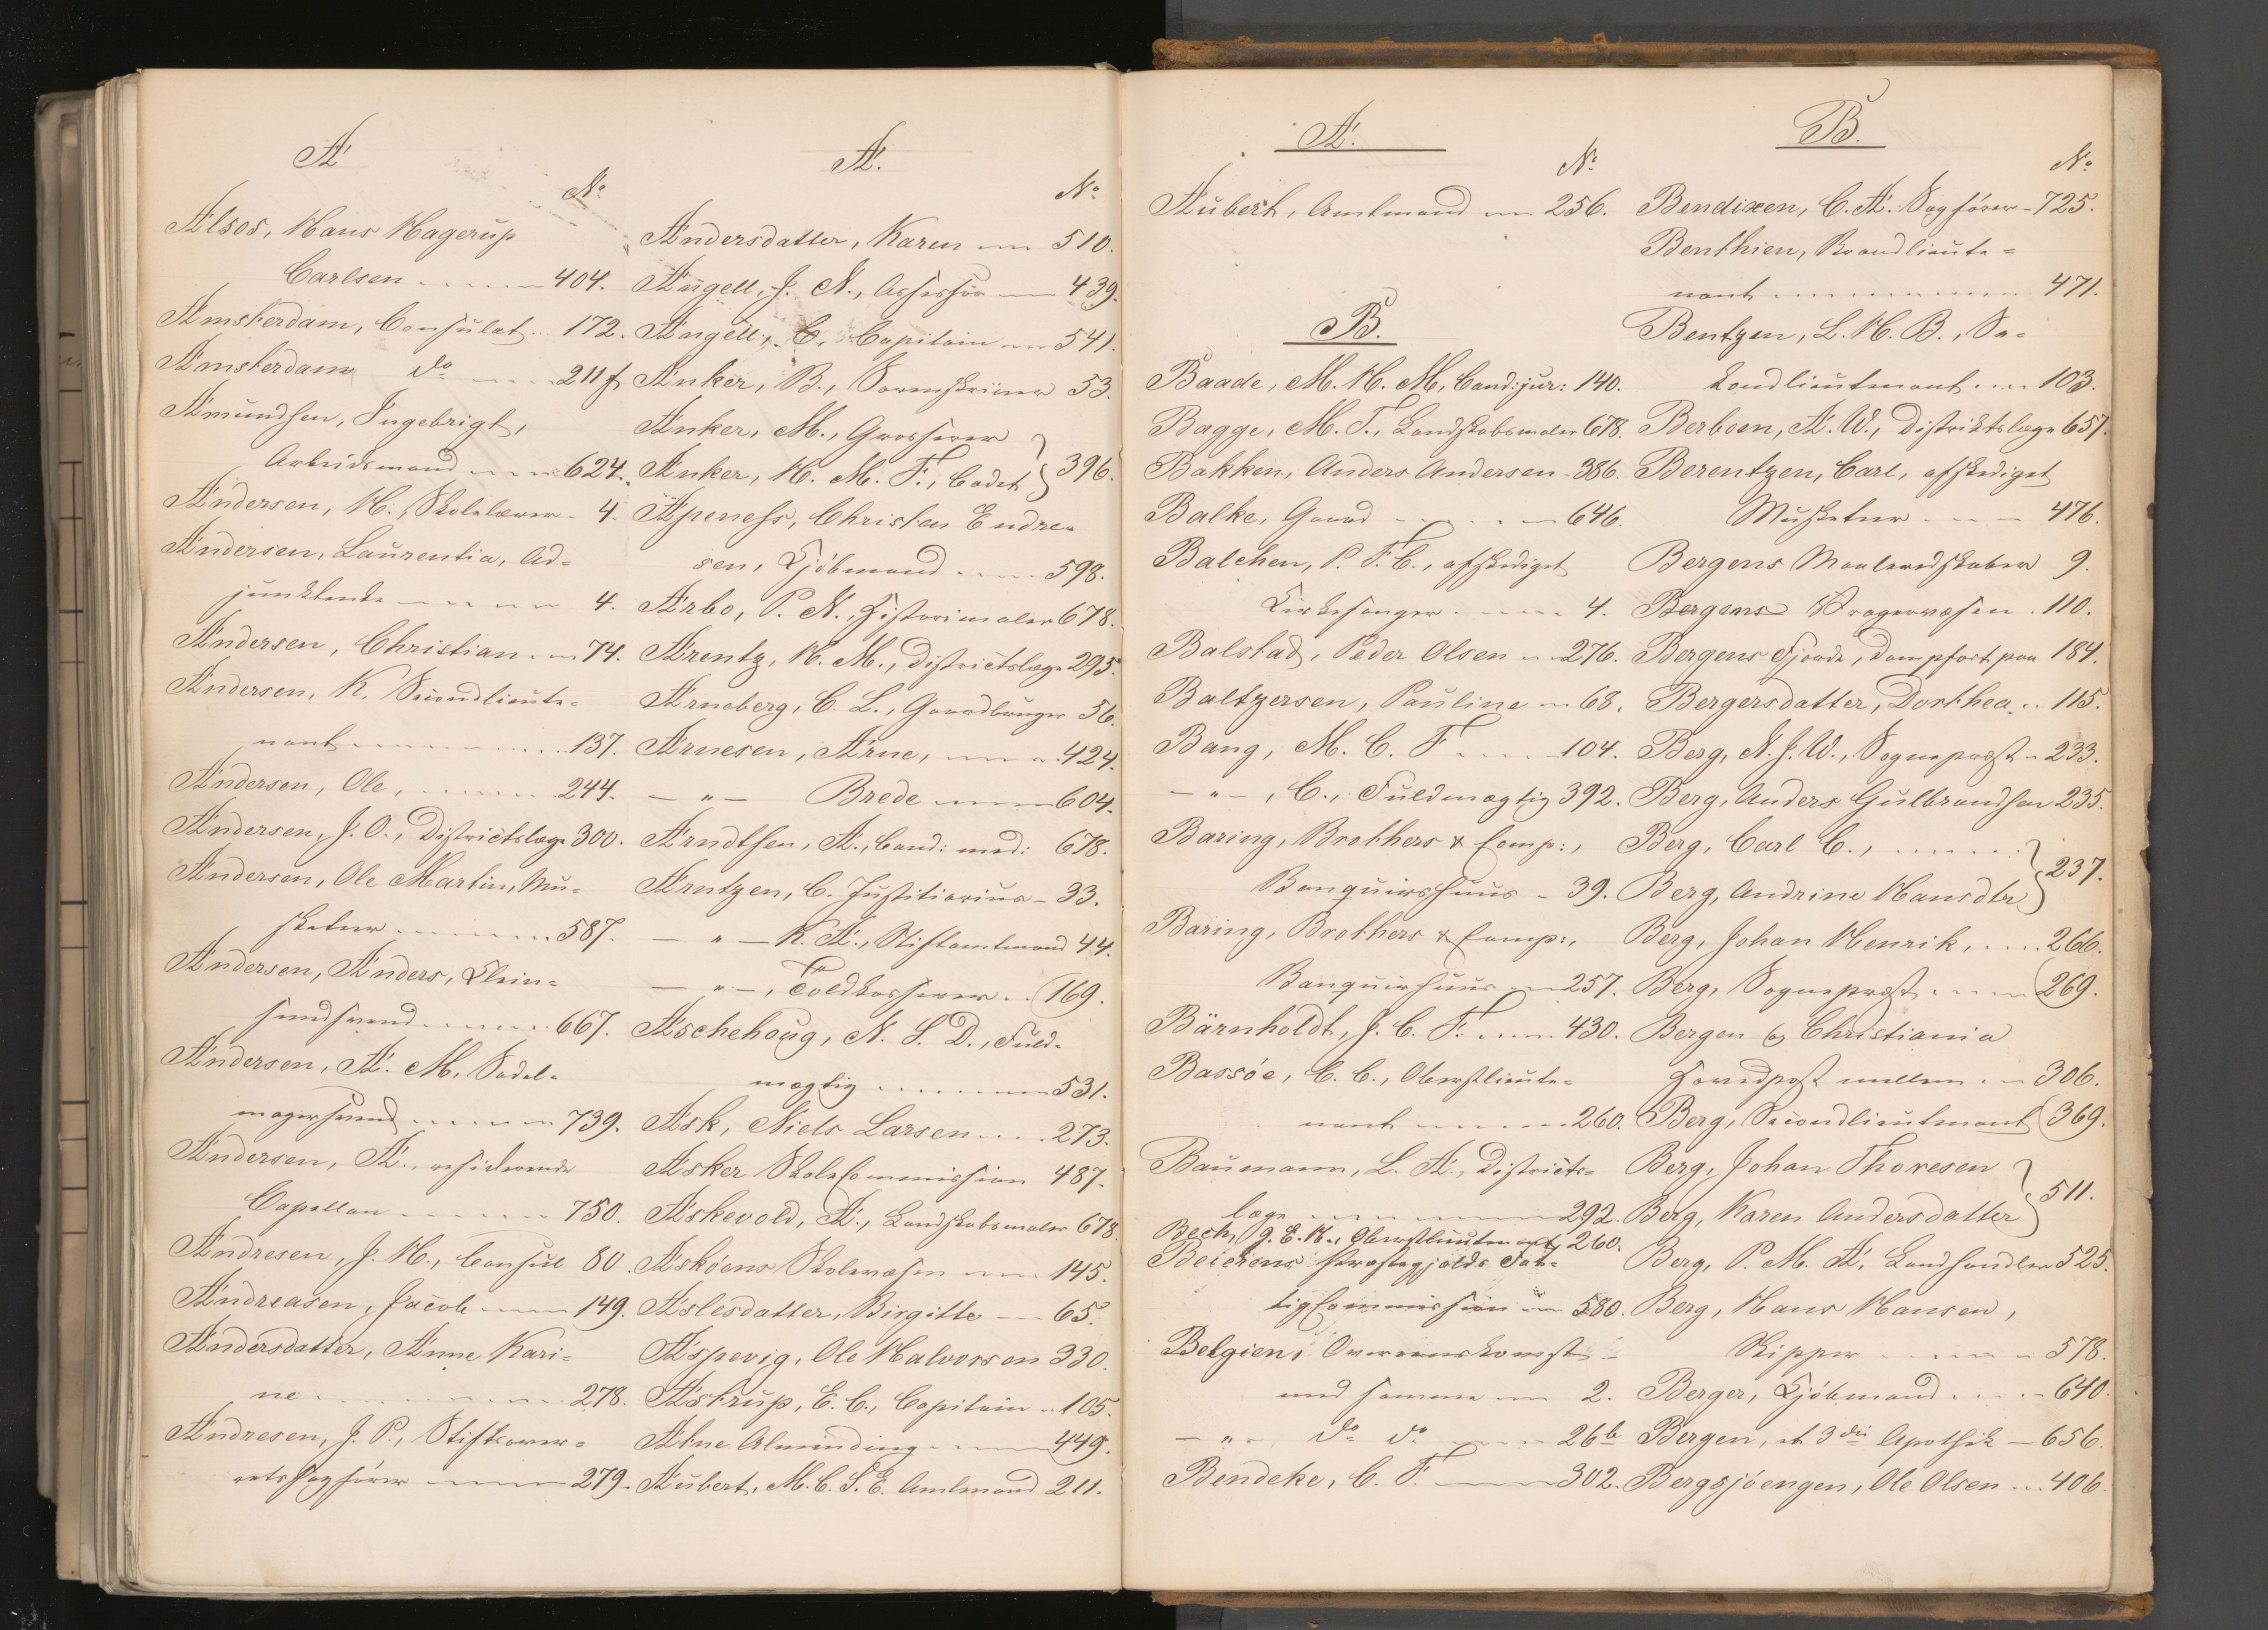 A
No
Alsos, Hans Hagerup
Carlsen 404.
Amsterdam, Consulat 172.
Amsterdam do 211 f.
Amundsen, Ingebrigt,
Arbeidsmand 624.
Andersen, H., Skolelærer 4.
Andersen, Laurentia, Ad-
junktenke 4.
Andersen, Christian 74.
Andersen, K. Secondlieute-
nant 137.
Andersen, Ole, 244.
Andersen, J. O., Districtslæge 300.
Andersen, Ole Martin, Mu-
sketeer 587.
Andersen, Anders,
667.
Andersen, A. M. Sadel-
magersvend 739.
Andersen, A., residerende
Capellan 750.
Andresen, J. H., Consul 80.
Andreasen, Jacob 149.
Andersdatter, Anne Kari-
ne 278.
Andresen, J. P., Stiftsover-
retssagfører 279.
A.
No
Andersdatter, Karen 510.
Angell, J. N., Assessor 439.
Angell, C., Capitain 541.
Anker, B., Sorenskriver 53.
Anker, M., Grosserer
Anker, H. M. F., Cadet } 396.
Apeness, Christen Endre-
sen, Kjøbmand 598.
Arbo, P. N., Historimaler 678.
Arentz, H. M., Districtslæge 295.
Arneberg, C. L., Gaardbruger 56.
Arnesen, Arne, 424.
— " — Brede 604.
Arndtsen, A., Cand: med: 678.
Arntzen, C. Justitiarius 33.
— " — K. A., Stiftamtmand 44.
— " —, Toldkasserer 169.
Aschehoug, N. S. D., Fuld-
mægtig 531.
Ask, Niels Larsen 273.
Asker Skolecommission 487.
Askevold, A., Landskabsmaler 678.
Askøens Skolevæsen 145.
Aslesdatter, Birgitte 65.
Aspevig, Ole Halvorsen 330.
Astrup, E. C., Capitain 105.
Atne Alminding 449.
Aubert, M. C. S. E. Amtmand 211.
A.
No
Aubert, Amtmand 256.
B.
Baade, M. H. M, Cand: jur: 140.
Bagge, M. T., Landskabsmaler 678.
Bakken, Anders Andersen 386.
Balke, Gaard 646.
Balchen, P. F. C., afskediget
Kirkesanger 4.
Balstad, Peder Olsen 276.
Baltzersen, Pauline 68.
Bang, M. C. F 104.
— " —, C., Fuldmægtig 392.
Baring, Brothers & Comp:,
Banquierhuus 39.
Baring, Brothers & Comp:,
Banquierhuus 257.
Bärnholdt, J. C. F. 430.
Bassøe, C. C., Oberstlieute-
nant 260.
Baumann, L. A., Districts-
læge 292.
Bech, J. E. K., Oberstlieutenant 260.
Beierens Præstegjelds Fat-
tigcommission 580.
Belgien, Overeenskomst
med samme 2.
— " — do do 26 b
Bendeke, C. F. 302.
B.
No
Bendixen, C. A. Sagfører 725.
Benthien, Brandlieute-
nant 471.
Bentzen, L. H. B., Se-
kondlieutenant 103.
Berboen, A. W., Distriktslæge 657.
Berentzen, Carl, afskediget
Musketeer 476.
Bergens Maaleredskaber 9.
Bergens Dragervæsen 110.
Bergens Fjorde, Dampfart paa 184.
Bergersdatter, Dorthea 115.
Berg, N. J. W., Sognepræst 233.
Berg, Anders Gulbrandsen 235.
Berg, Carl C.,
Berg, Andrine Hansdtr } 237.
Berg, Johan Henrik, 266.
Berg, Sognepræst 269.
Bergen og Christiania
Hovedpost mellem 306.
Berg, Secondlieutenant 369.
Berg, Johan Thoresen
Berg, Karen Andersdatter } 511.
Berg, P. M. A, Landhandler 525.
Berg, Hans Hansen,
Skipper 578.
Berger, Kjøbmand 640.
Bergen, et 3die Apothek 656.
Bergsjøengen, Ole Olsen 406.